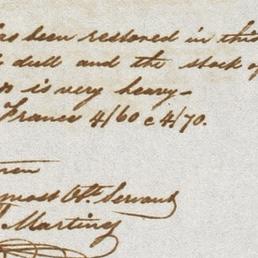 has been restored in this
dull and the stock of
is very heavy-
France 4/60 c 4/70.
most Obt. Servant
Martiny